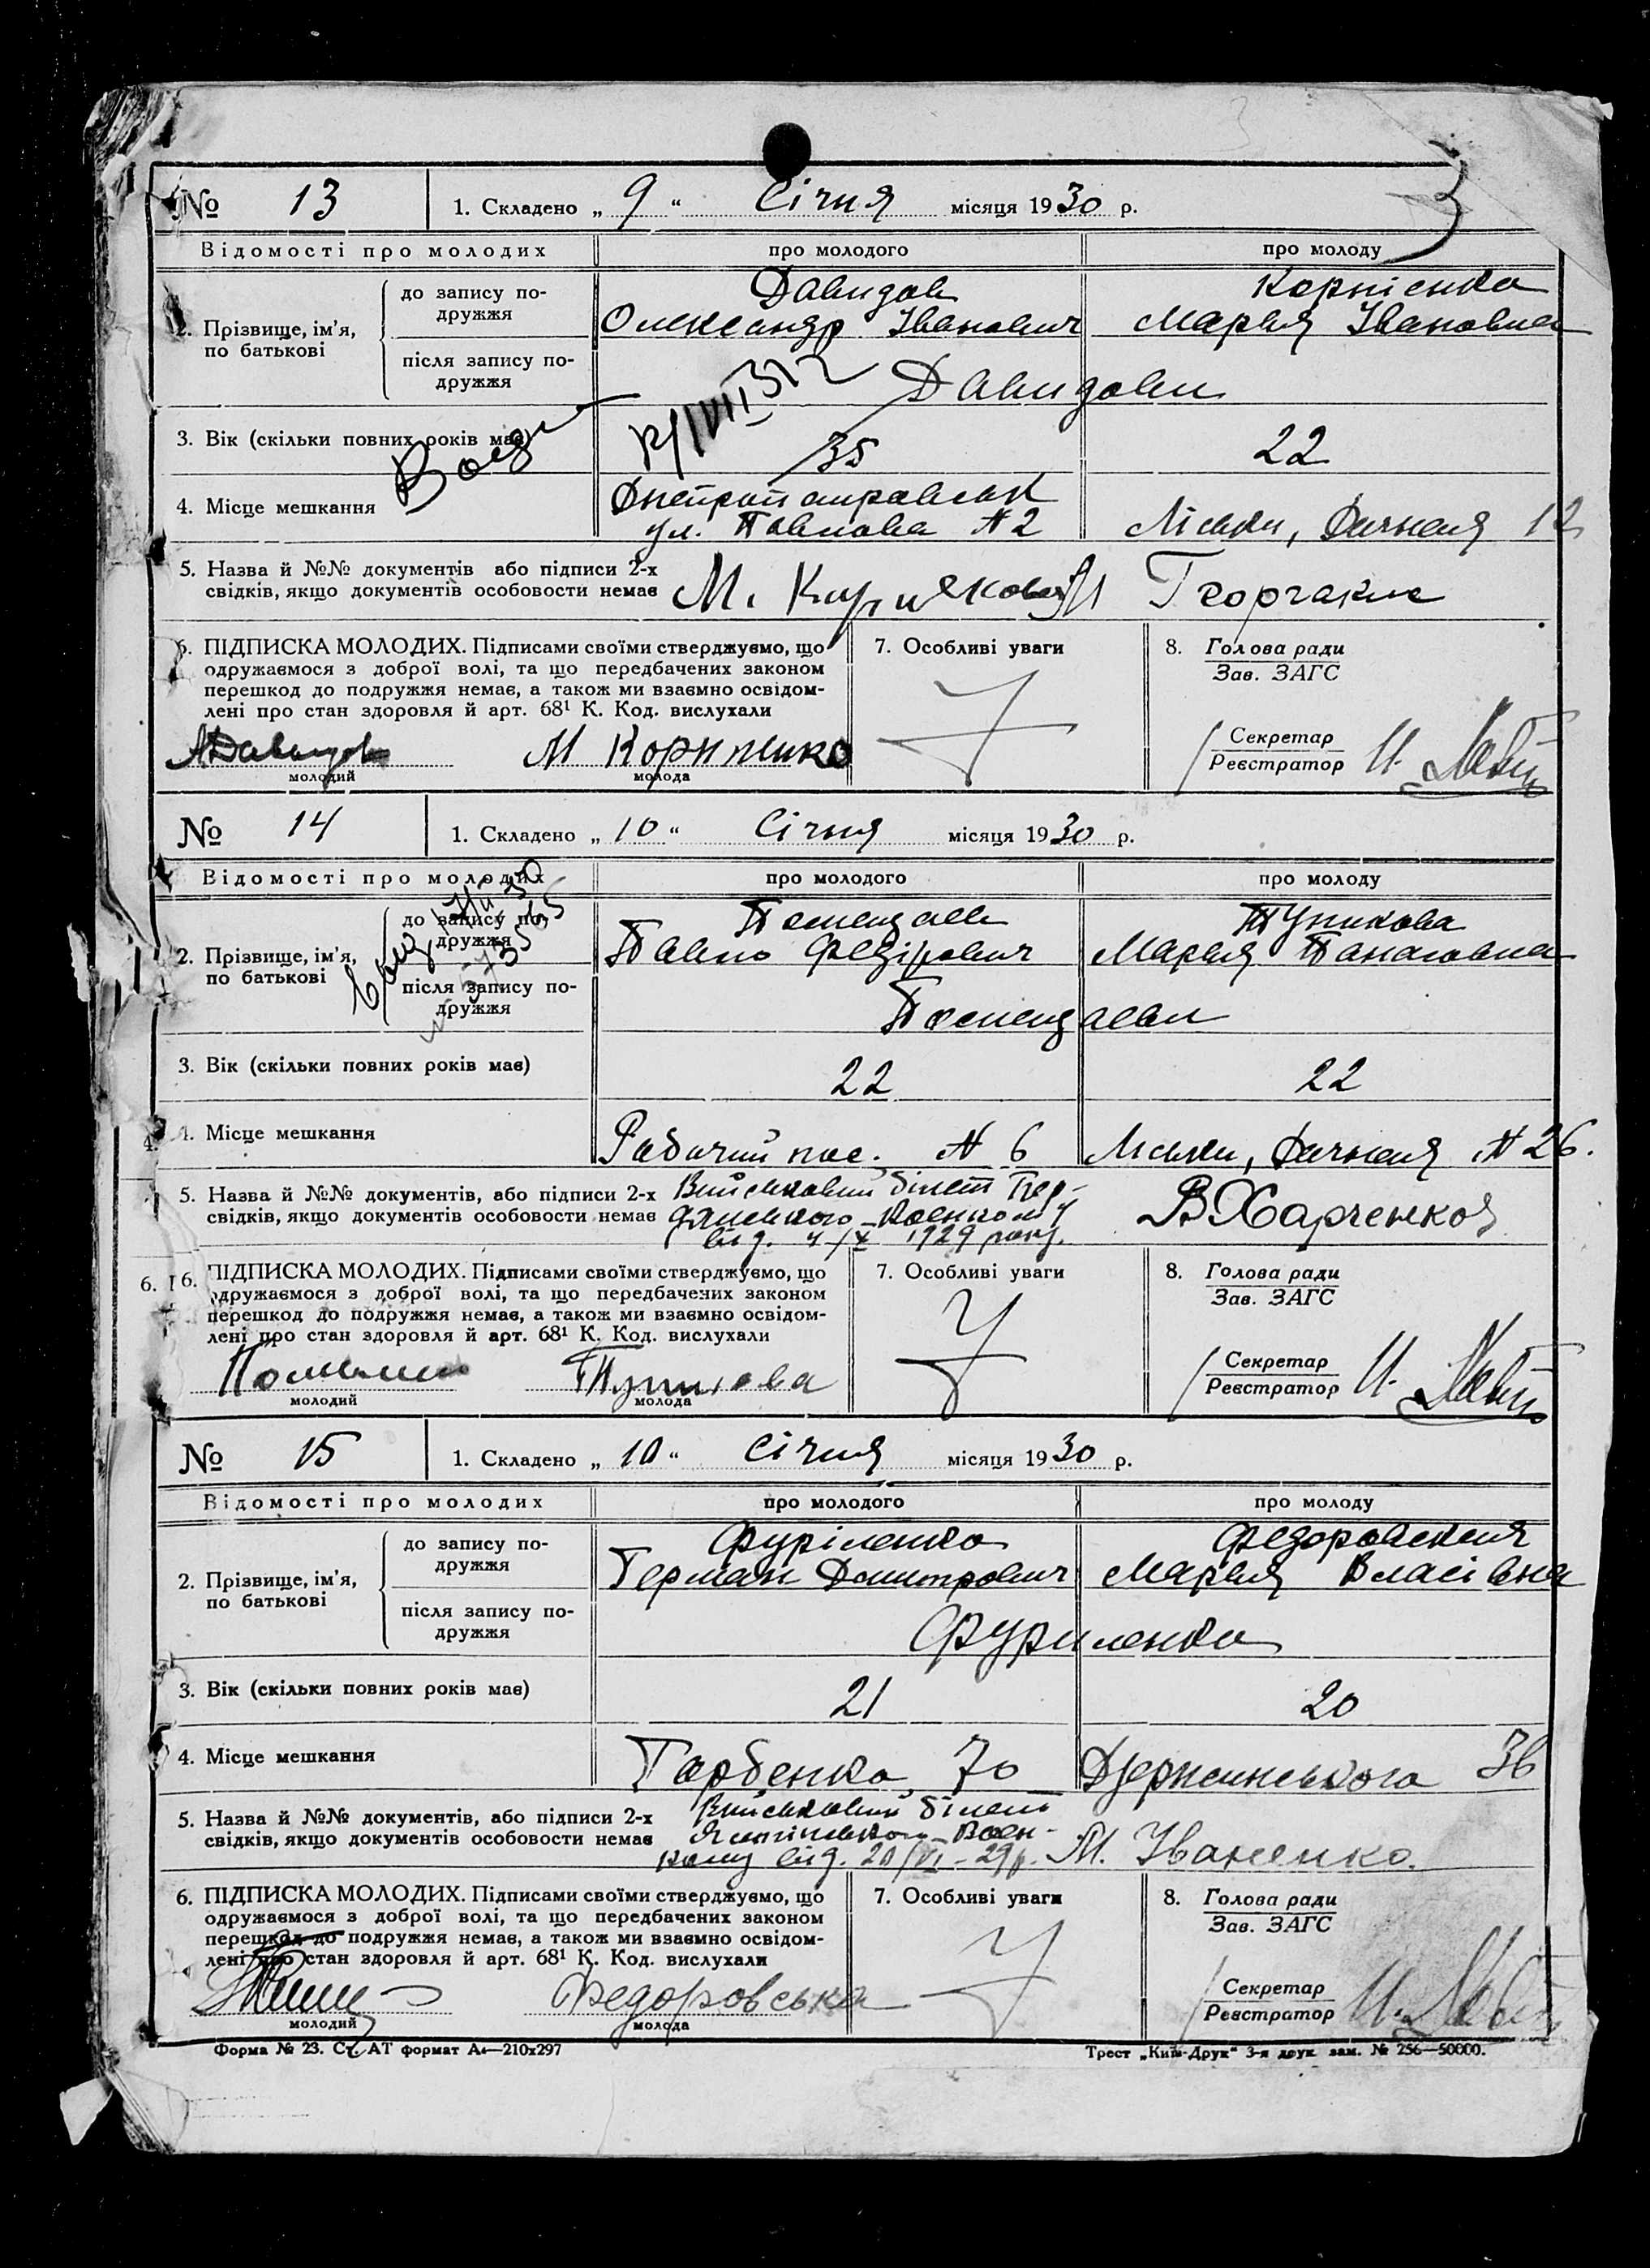 3
№ 13 1. Складено „ 9 “ Січня місяця 1930 р.
Відомості про молодих про молодого про молоду
2. Прізвище, ім’я, по батькові
до запису подружжя
Давидов Корнієнко
Олександр Іванович Марья Івановна
після запису подружжя
Давидови
3. Вік (скільки повних років має) 35 22
4. Місце мешкання
ул. Павлова № 2 Ліськи, Дачная 12
5. Назва й №№ документів або підписи 2-х
свідків, якщо документів особовости немає М.
6. ПІДПИСКА МОЛОДИХ. Підписами своїми стверджуємо, що 7. Особливі уваги 8. Голова ради
одружаємося з доброї волі, та що передбачених законом Зав. ЗАГС
перешкод до подружжя немає, а також ми взаємно освідом-
лені про стан здоровля й арт. 68¹ К. Код. вислухали
Секретар
АДавыдов М Корниенко Реєстратор
молодий молода
№ 14 1. Складено „ 10 “ Січня місяця 1930 р.
Відомості про молодих про молодого про молоду
2. Прізвище, ім’я, по батькові
до запису подружжя
Тупикова
Павло Федірович Марья Панасовна
після запису подружжя
3. Вік (скільки повних років має) 22 22
4. Місце мешкання Рабочий пос. № 6 Ліськи, Дачная № 26.
5. Назва й №№ документів, або підписи 2-х Військовий білет Бер-
свідків, якщо документів особовости немає дянського Военкому ВХарченко
від. 4/X 1929 року.
6. ПІДПИСКА МОЛОДИХ. Підписами своїми стверджуємо, що 7. Особливі уваги 8. Голова ради
одружаємося з доброї волі, та що передбачених законом Зав. ЗАГС
перешкод до подружжя немає, а також ми взаємно освідом-
лені про стан здоровля й арт. 68¹ К. Код. вислухали
Секретар
Тупикова Реєстратор
молодий молода
№ 15 1. Складено „ 10 “ Січня місяця 1930 р.
Відомості про молодих про молодого про молоду
2. Прізвище, ім’я, по батькові
до запису подружжя
Фуріленко Федоровская
Герман Дмитрович Марья Власівна
після запису подружжя
Фуриленко
3. Вік (скільки повних років має) 21 20
4. Місце мешкання Гарбенко, 70 Дзержинського 36
5. Назва й №№ документів, або підписи 2-х Військовий білет
свідків, якщо документів особовости немає Воен-
кому від. 20/VI-29р. М. Іваненко.
6. ПІДПИСКА МОЛОДИХ. Підписами своїми стверджуємо, що 7. Особливі уваги 8. Голова ради
одружаємося з доброї волі, та що передбачених законом Зав. ЗАГС
перешкод до подружжя немає, а також ми взаємно освідом-
лені про стан здоровля й арт. 68¹ К. Код. вислухали
Секретар
Федоровська Реєстратор
молодий молода
Форма № 23. Ст. АТ формат А₄—210х297 Трест „Київ-Друк“ 3-я друк. зам. № 256—50000.